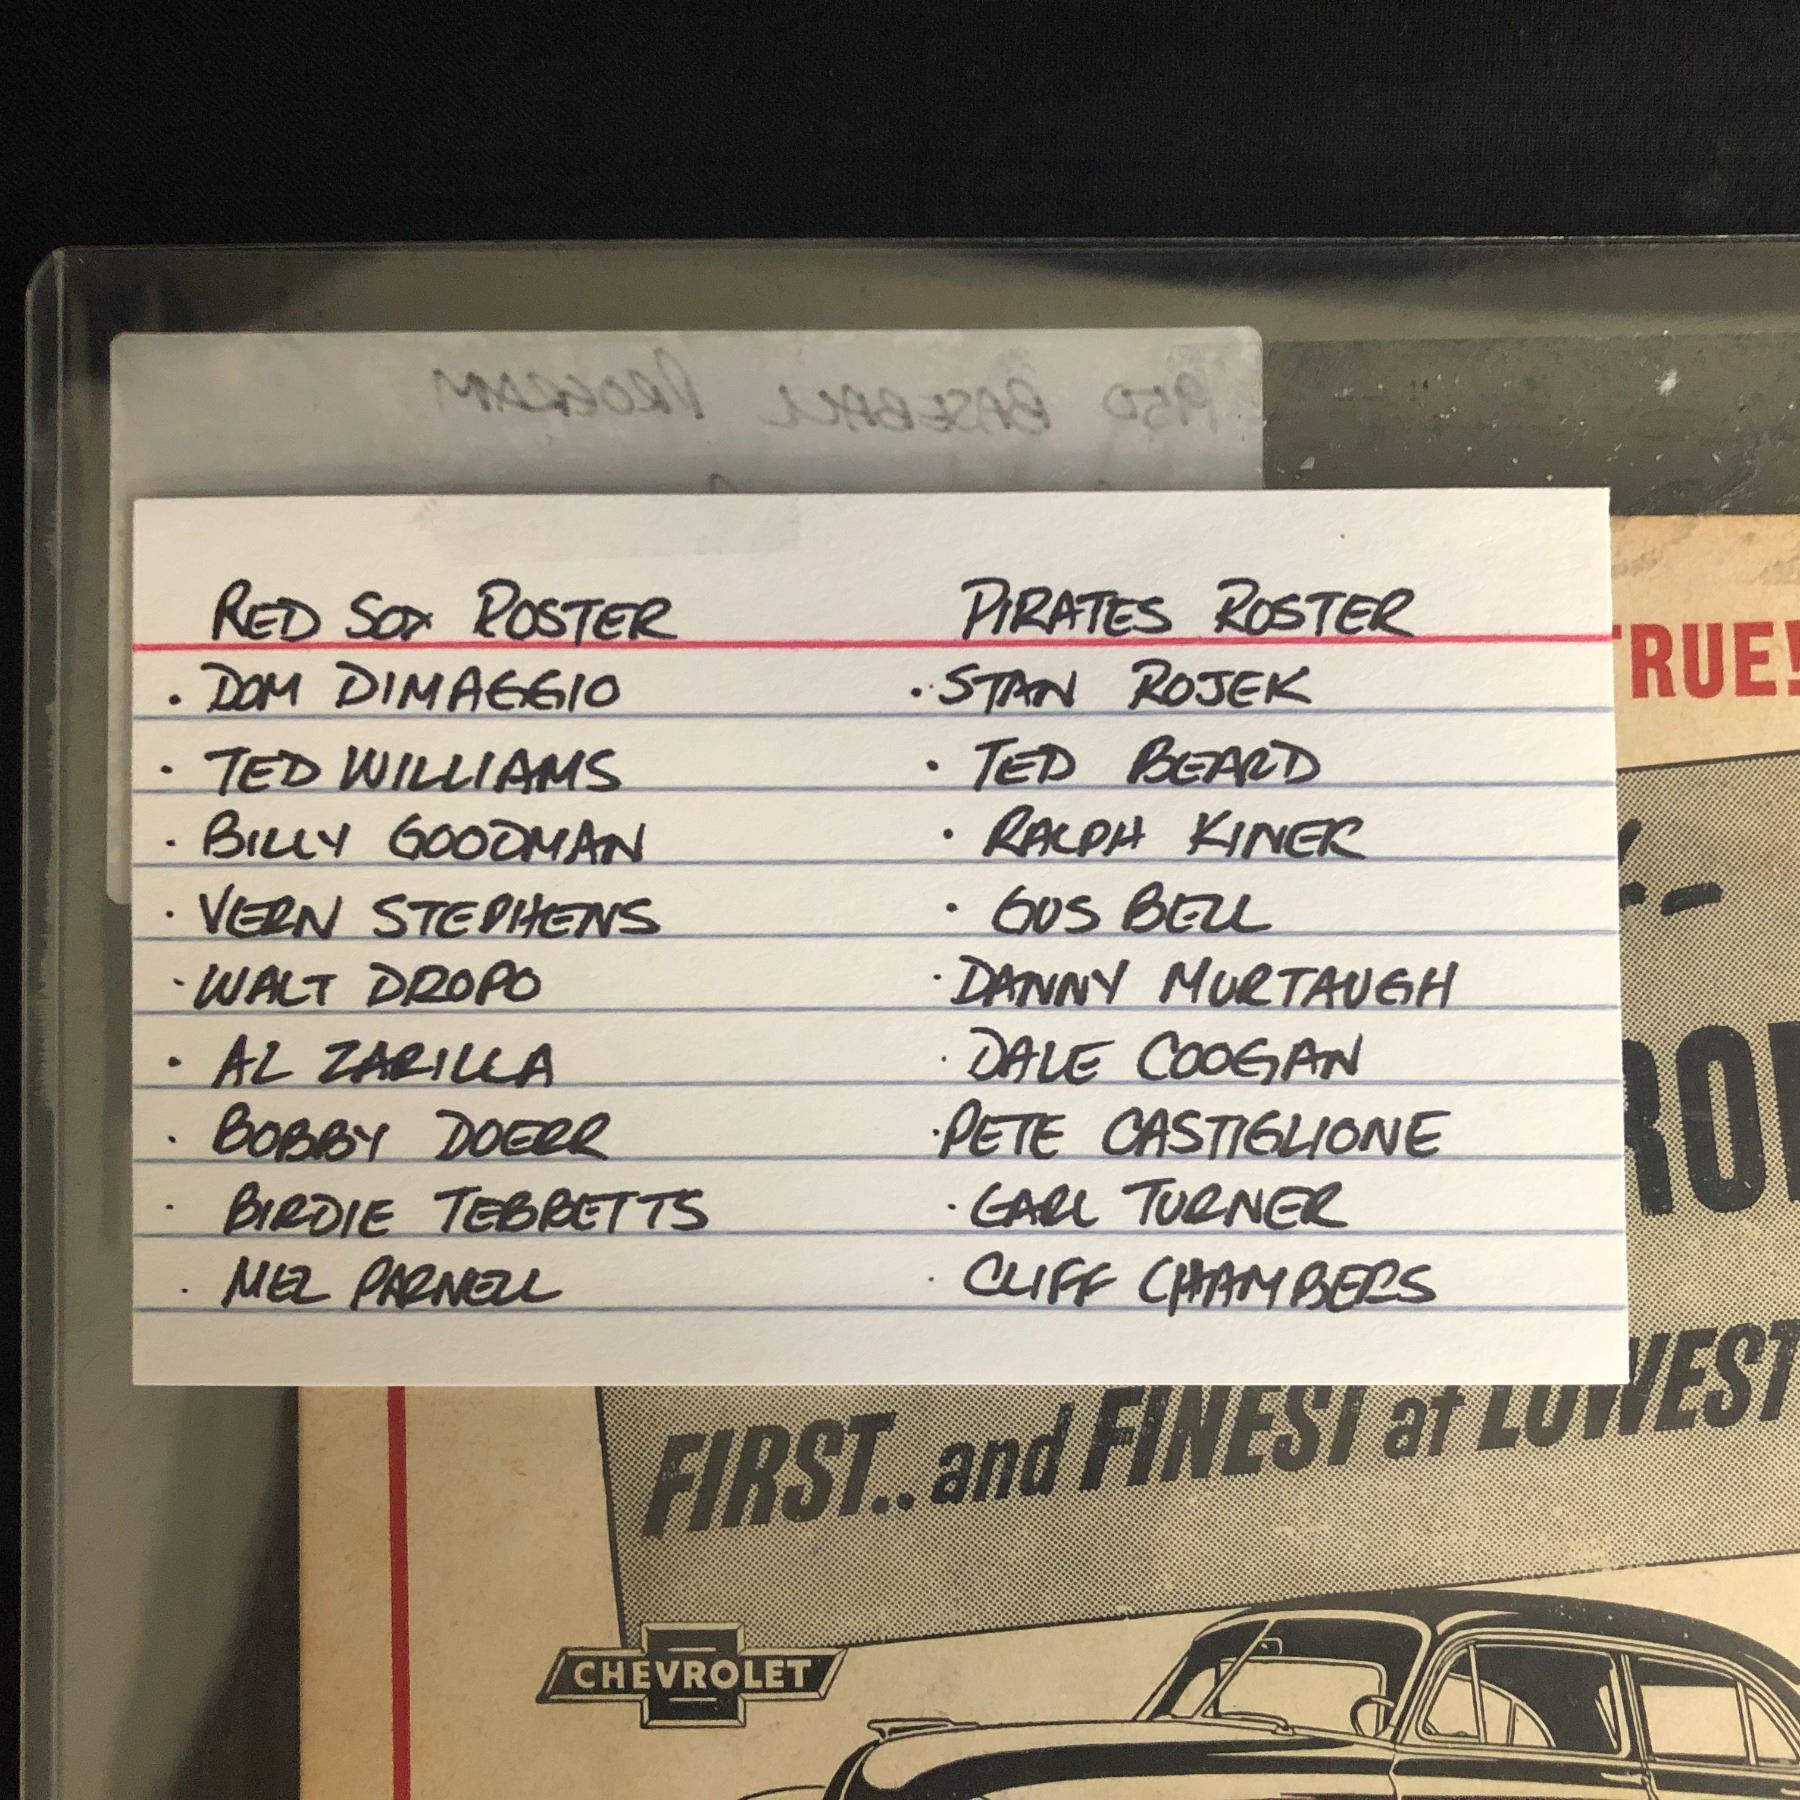 1950 BASEBALL PROGRAM
RED SOX ROSTER PIRATES ROSTER
· DOM DIMAGGIO · STAN ROJEK
· TED WILLIAMS · TED BEARD
· BILLY GOODMAN · RALPH KINER
· VERN STEPHENS · GUS BELL
· WALT DROPO · DANNY MURTAUGH
· AL ZARILLA · DALE COOGAN
· BOBBY DOERR · PETE CASTIGLIONE
· BIRDIE TEBBETTS · EARL TURNER
· MEL PARNELL · CLIFF CHAMBERS
TRUE!
FIRST.. and FINEST at LOWEST
CHEVROLET